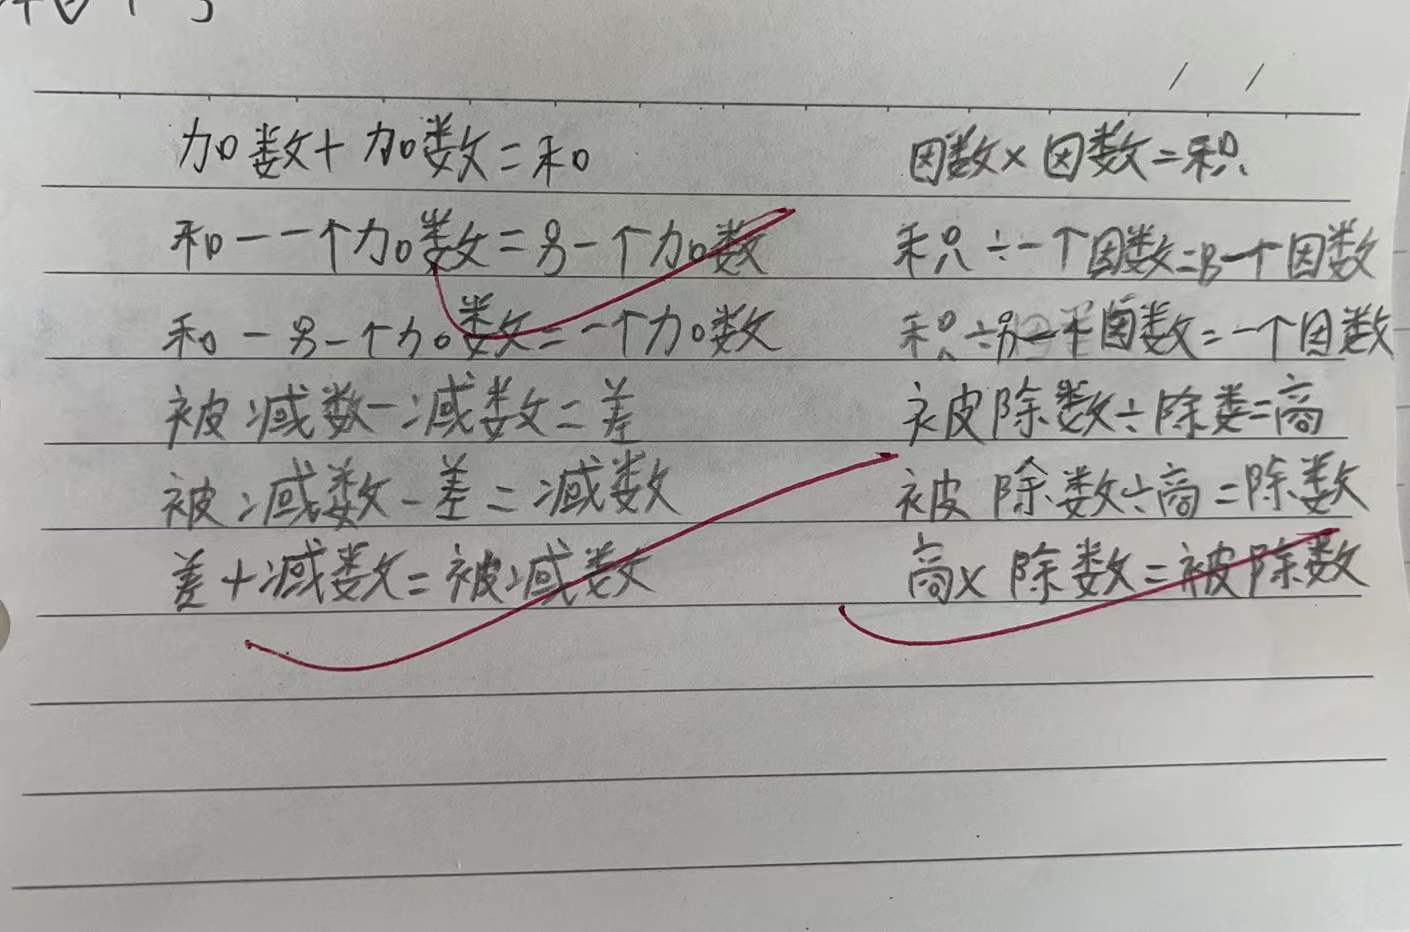 加数+加数=和
和-一个加数=另一个加数
和-另一个加数=一个加数
被减数-减数=差
被减数-差=减数
差+减数=被减数
因数×因数=积
积÷一个因数=另一个因数
积÷另一个因数=一个因数
被除数÷除数=商
被除数÷商=除数
商×除数=被除数